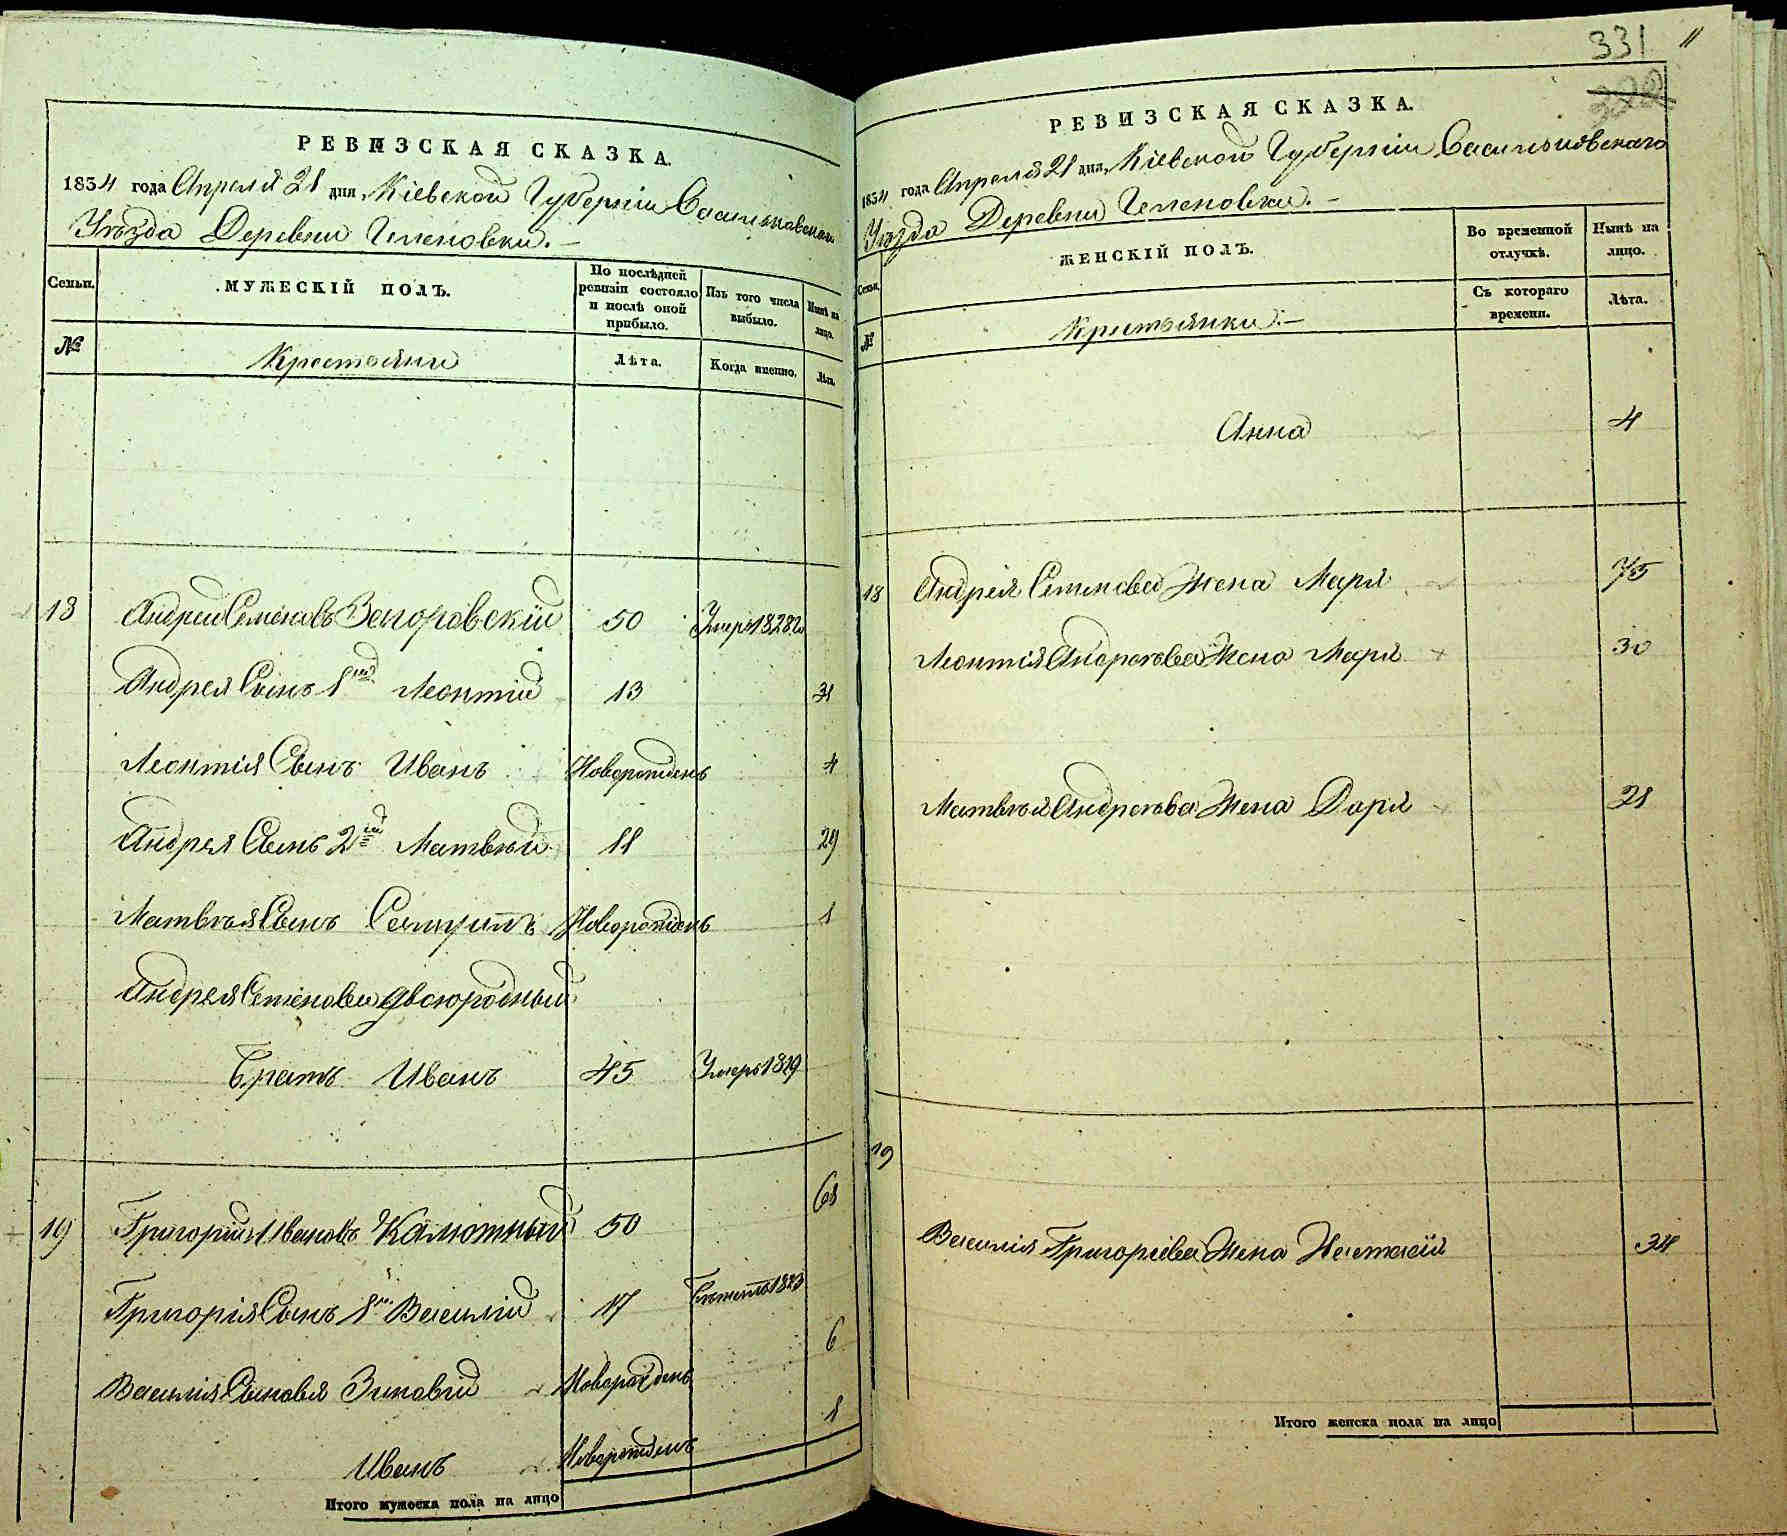 РЕВИЗСКАЯ СКАЗКА.
1834 года Апреля 21 дня, Кіевской Губерніи Васильковскаго
Уѣзда Деревни
Семьи.
МУЖЕСКІЙ ПОЛЪ.
По послѣдней ревизіи состояло и послѣ оной прибыло.
Изъ того числа выбыло.
Нынѣ на лицо.
№
Крестьяни
Лѣта.
Когда именно.
Лѣта.
18 Андрей Семеновъ 50 Умеръ 1828
Андрея Сынъ 1й Леонтій 13 31
Леонтія Сынъ Иванъ Новорожденъ 4
Андрея Сынъ 2й Матвѣй 11 29
Матвѣя Сынъ Новорожденъ 1
Андрея Семенова двоюродный
Братъ Иванъ 45 Умеръ 1819
19 Григорій Ивановъ 50 68
Григорія Сынъ 1й Василій 17
Василія Сыновья Зиновій Новорожденъ 6
Иванъ Новорожденъ 1
Итого мужеска пола на лицо
331 11
РЕВИЗСКАЯ СКАЗКА.
1834 года Апреля 21 дня, Кіевской Губерніи Васильковскаго
Уѣзда Деревни
Семьи.
ЖЕНСКІЙ ПОЛЪ.
Во временной отлучкѣ.
Нынѣ на лицо.
№
Крестьянки
Съ котораго времени.
Лѣта.
Анна 4
18 Андрея Семенова Жена Маря 75
Леонтія Андреева Жена Маря 30
Матвѣя Андреева Жена Даря 21
19
Василія Григоріева Жена Настасія 34
Итого женска пола на лицо